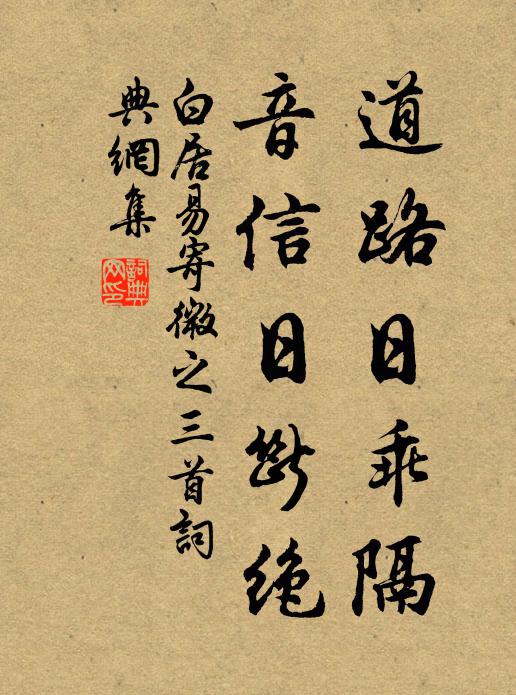 道路日乖隔
音信日斷絶
白居易寄微之三首詞
典網集
詞典
网印